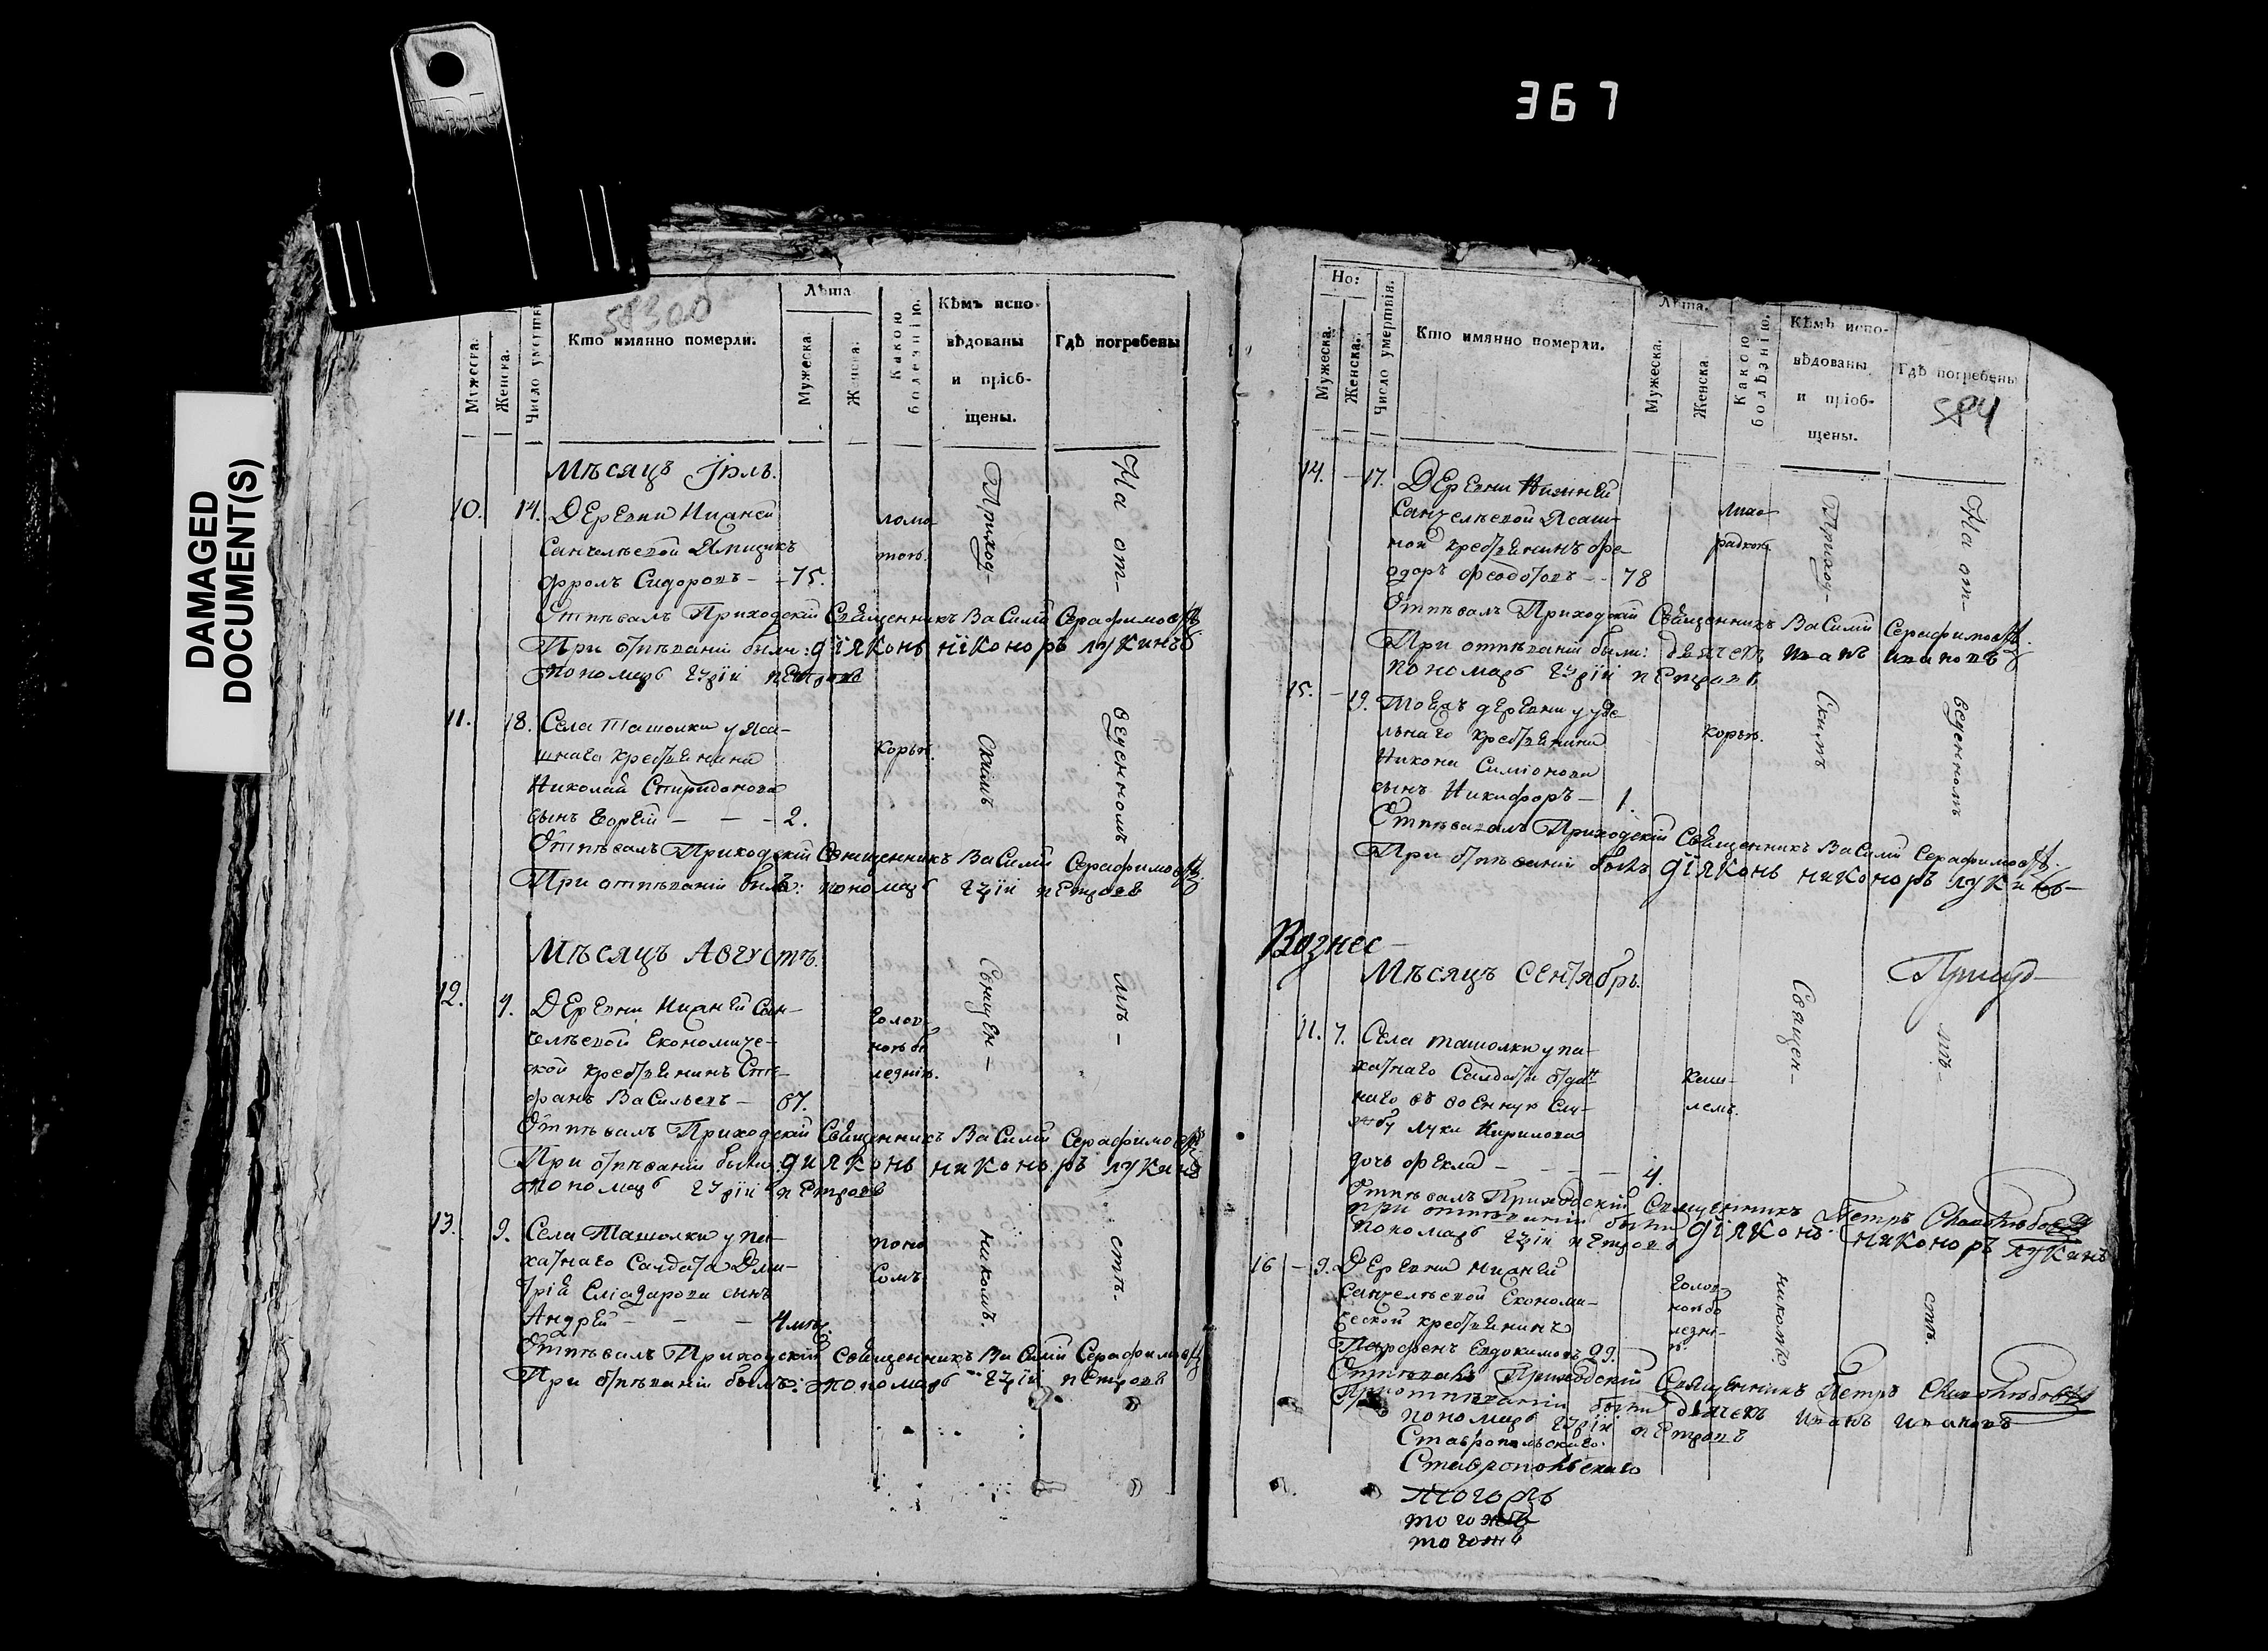 367
DAMAGED
DOCUMENT(S)
58300
Мужеска.
Женска.
Число умертвія
Кто имянно померли.
Лѣта
Мужеска.
Женска.
Какою болезнію.
Кѣмъ испо-
вѣдованы
и пріоб-
щены.
Гдѣ погребены
Мѣсяцъ Іюль.
10. 14. Деревни Нижней
Санчелѣевой Ямщикъ
Фролъ Сидоровъ - 75.
ломо
тою.
Отпѣвалъ Приходскій Священникъ Василій Серафимовъ
При отпѣваніи были: діяконь ніконоръ лукинъ
Пономарь Гурій Петровъ
11. 18. Села Ташолки у Яса-
шнаго крестьянина
Николай Спиридонова
сынъ Егорей - - - 2.
корью.
Отпѣвалъ Приходскій Священникъ Василій Серафимовъ
При отпѣваніи былъ: пономарь Гурій Петровъ
Мѣсяцъ Августъ.
12. 4. Деревни Нижней Сан-
челѣевой Економиче-
ской крестьянинъ Сте-
фанъ Васильевъ - 67.
голов
ною бо
лезнію.
Отпѣвалъ Приходскій Священникъ Василій Серафимовъ
При отпѣваніи были діяконь никоноръ лукинъ
Пономарь Гурій Петровъ
13. 9. Села Ташолки у па-
хатнаго Салдата Дми-
трій Еліазарова сынъ
Андрей - - - 4 мѣс.
поно
сомъ
Отпѣвалъ Приходскій священникъ Василій Серафимовъ
При отпѣваніи былъ: пономарь Гурій Петровъ
Приход-
скимъ
Священ-
никомъ.
На от-
веденномъ
мѣ-
стѣ.
Но:
Мужеска.
Женска.
Число умертвія.
Кто имянно померли.
Лѣта.
Мужеска.
Женска
Какою болѣзнію.
Кѣмъ испо-
вѣдованы
и пріоб-
щены.
Гдѣ погребены
584
14. - 17. Деревни Нижней
Санчелѣевой Ясаш-
ной крестьянинъ Фе-
одоръ Феодотовъ - - 78
лихо-
радкою.
Отпѣвалъ Приходскій Священникъ Василій Серафимовъ.
При отпѣваніи были: дьячекъ Иванъ Ивановъ
пономарь Гурій Петровъ
15. - 19. Тоежъ деревни у уде-
льнаго крестьянина
Никона Симіонова
сынъ Никифоръ - 1.
корью.
Отпѣвалъ Приходскій Священникъ Василій Серафимовъ.
При отпѣваніи былъ діяконь никоноръ лукинъ
Вознес-
Мѣсяцъ Сентябрь.
11. 7. Села Ташолки у па-
хатнаго Салдата отдан
наго въ военную слу-
жбу Луки Кирилова
дочь Фекла - - - 4.
каш-
лемъ.
Отпѣвалъ Приходскій Священникъ Петръ
при отпѣваніи были діяконь никоноръ лукинъ
пономарь Гурій Петровъ
16 - 9. Деревни Нижней
Санчелѣевой Економи-
ческой крестьянинъ
Парфенъ Евдокимовъ 29.
голов
ною бо
лезні-
ю.
Отпѣвалъ Приходскій Священникъ Петръ
При отпѣваніи были дьячекъ Иванъ Ивановъ
пономарь Гурій Петровъ
Ставропольскаго.
Ставропольскаго
тогожъ
тогожъ
тогожъ
Приход-
скимъ
Священ-
никомъ.
На от-
веденномъ
мѣ-
стѣ.